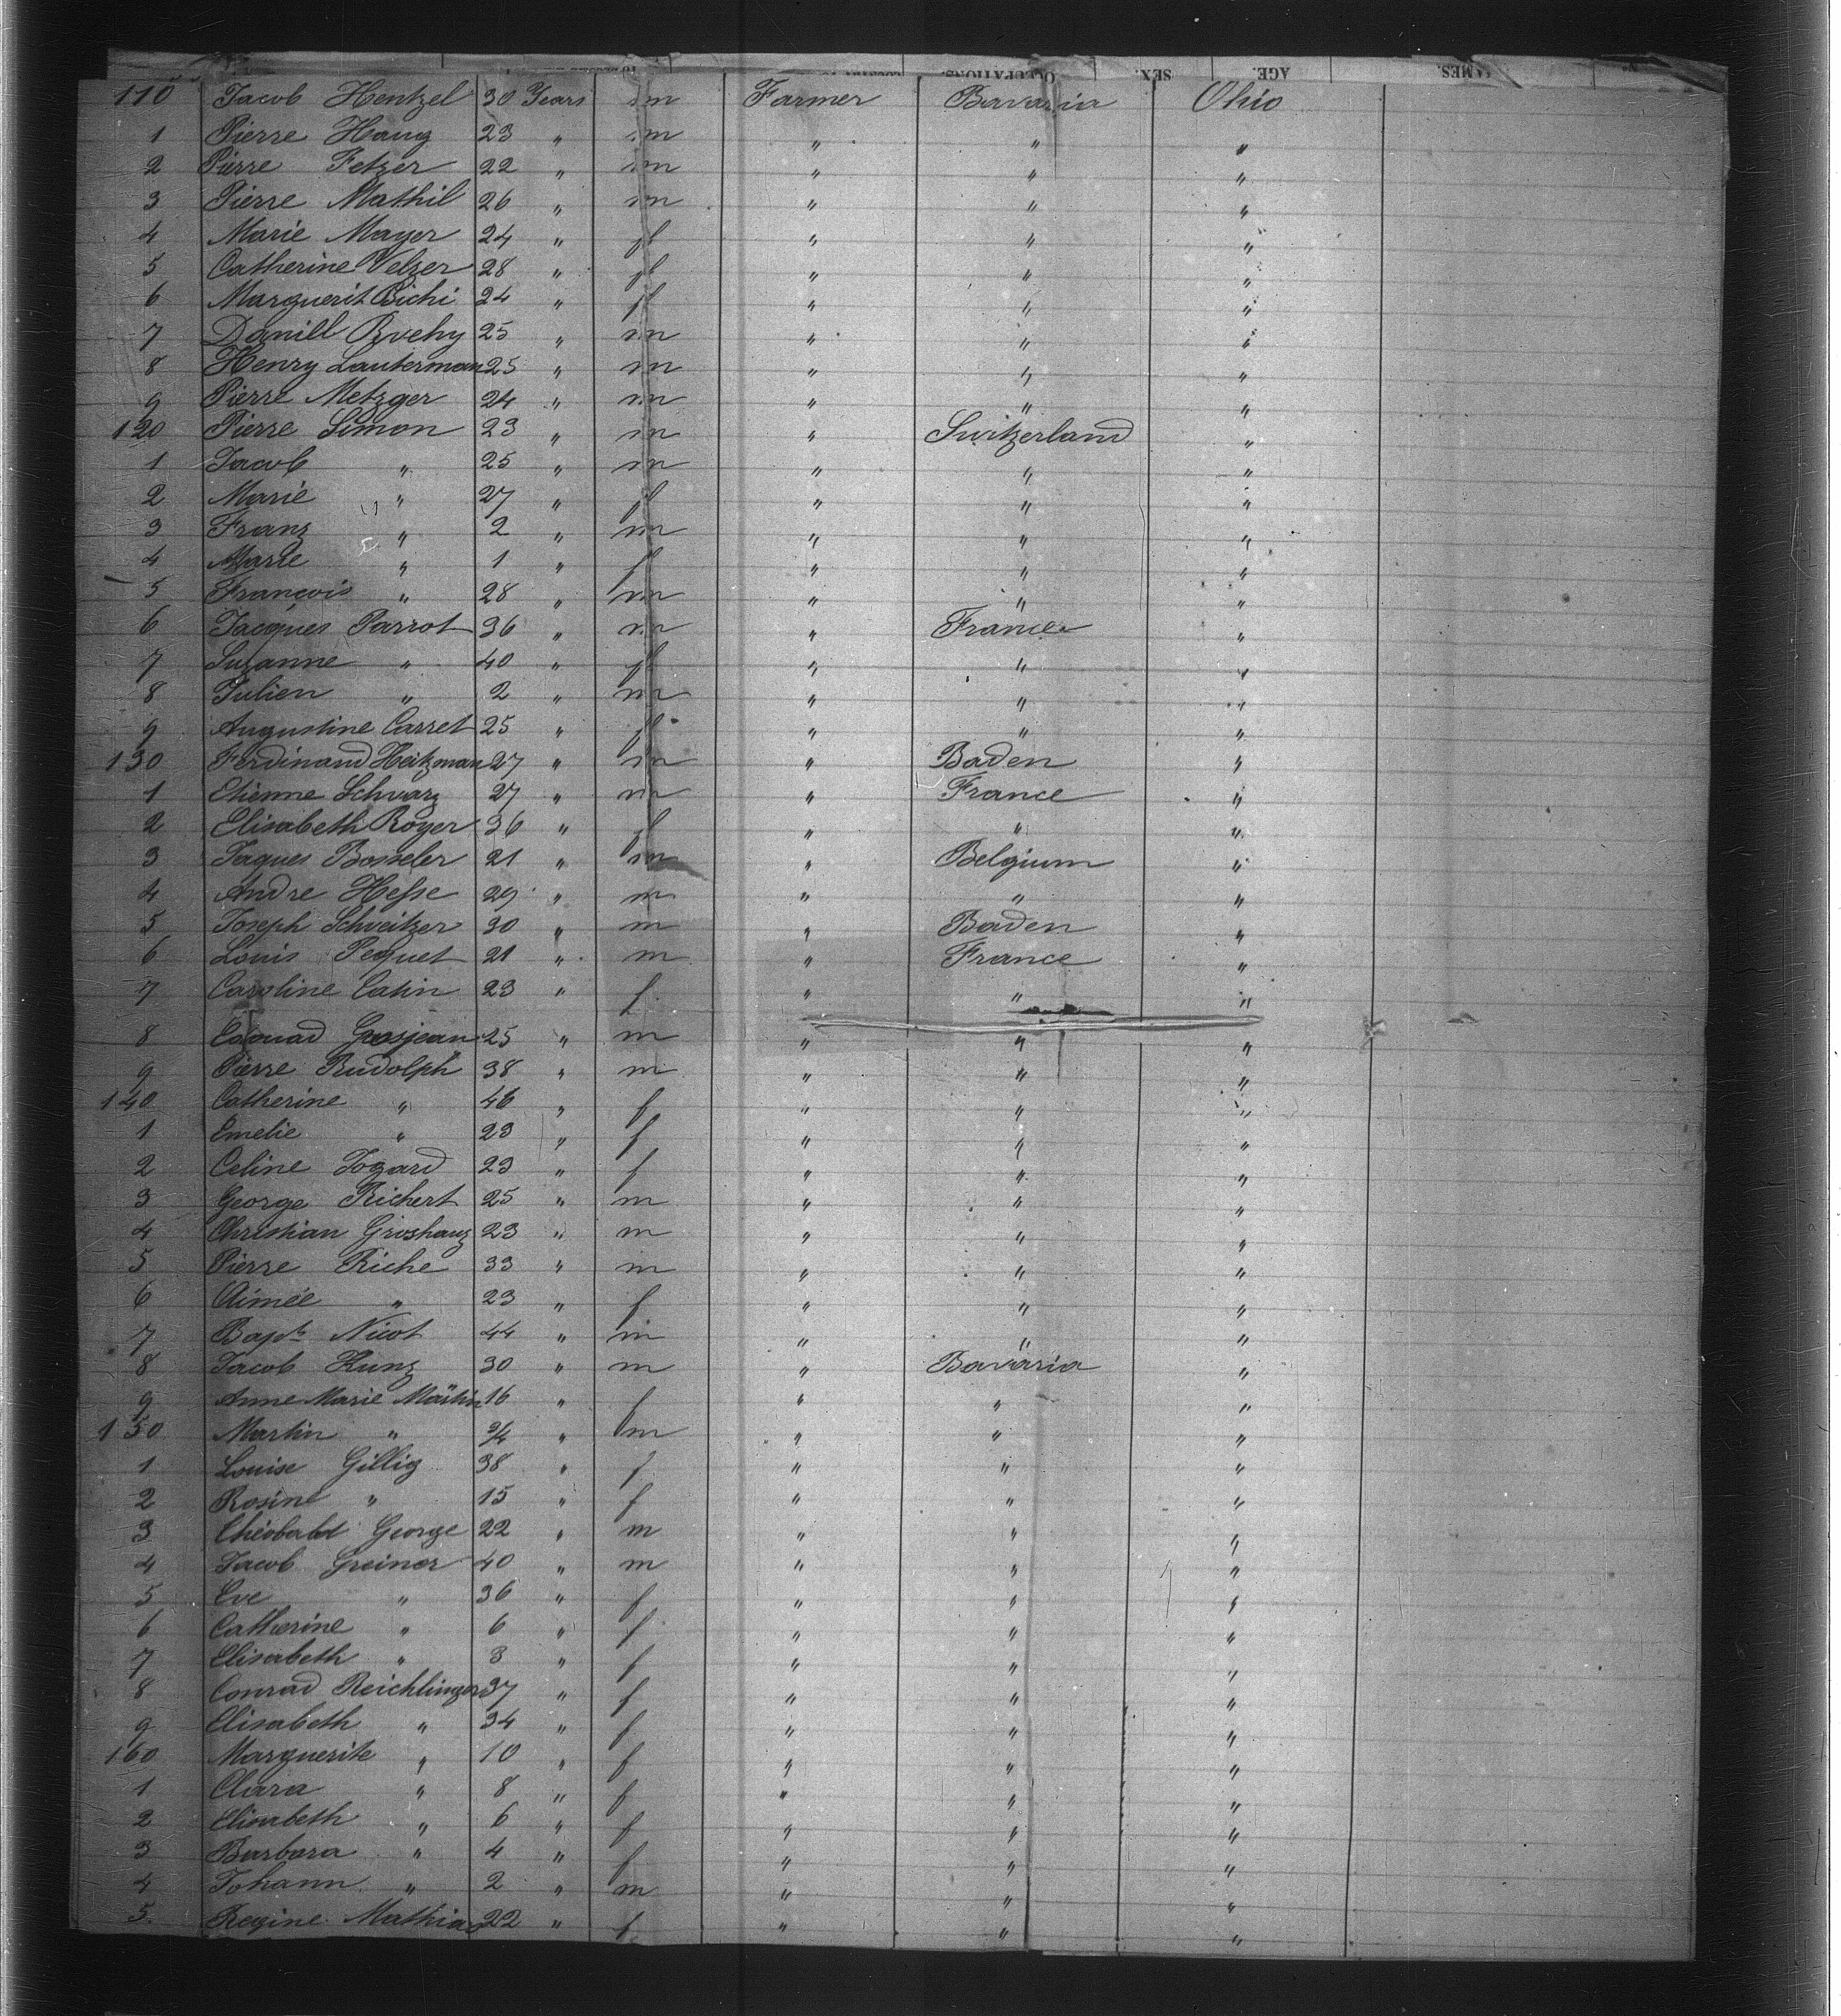 OCCUPATIONS. SEX. AGE.
110 Jacob Hentzel 30 Years m Farmer Bavaria Ohio
1 Pierre Haug 23 " m " " "
2 Pierre Fetzer 22 " m " " "
3 Pierre Mathil 26 " m " " "
4 Marie Mayer 24 " f " " "
5 Catherine Velzer 28 " f " " "
6 Marguerit Bichi 24 " f " " "
7 Daniel 25 " m " " "
8 Henry Lauterman 25 " m " " "
9 Pierre Metzger 24 " m " " "
120 Pierre Simon 23 " m " Switzerland "
1 Jacob " 25 " m " " "
2 Marie " 27 " f " " "
3 Franz " 2 " m " " "
4 Marie " 1 " f " " "
5 François " 28 " m " " "
6 Jacques Parrot 36 " m " France "
7 Suzanne " 40 " f " " "
8 Julien " 2 " m " " "
9 Augustine Carret 25 " f " " "
130 Ferdinand Heitzman 27 " m " Baden "
1 Etienne Schvarz 27 " m " France "
2 Elisabeth Royer 36 " f " " "
3 Jaques Bosseler 21 " m " Belgium "
4 Andre Hesse 29 " m " " "
5 Joseph Schveitzer 30 " m " Baden "
6 Louis Pequet 21 " m " France "
7 Caroline Catin 23 " f " " "
8 Edouad Grosjean 25 " m " " "
9 Pierre Rudolph 38 " m " " "
140 Catherine " 46 " f " " "
1 Emelie " 23 " f " " "
2 Celine Togard 23 " f " " "
3 George Richert 25 " m " " "
4 Christian Groshanz 23 " m " " "
5 Pierre Riche 33 " m " " "
6 Aimée " 23 " f " " "
7 Bapt. Nicot 44 " m " " "
8 Jacob Kunz 30 " m " Bavaria "
9 Anne Marie Mäthin 16 " f " " "
150 Martin " 3/4 " m " " "
1 Louise Gillig 38 " f " " "
2 Rosine " 15 " f " " "
3 Théobald George 22 " m " " "
4 Jacob Greiner 40 " m " " "
5 Eve " 36 " f " " "
6 Catherine " 6 " f " " "
7 Elisabeth " 3 " f " " "
8 Conrad Reichlinger 37 " f " " "
9 Elisabeth " 34 " f " " "
160 Marguerite " 10 " f " " "
1 Clara " 8 " f " " "
2 Elisabeth " 6 " f " " "
3 Barbara " 4 " f " " "
4 Johann " 2 " m " " "
5. Regine Mathias 22 " f " " "